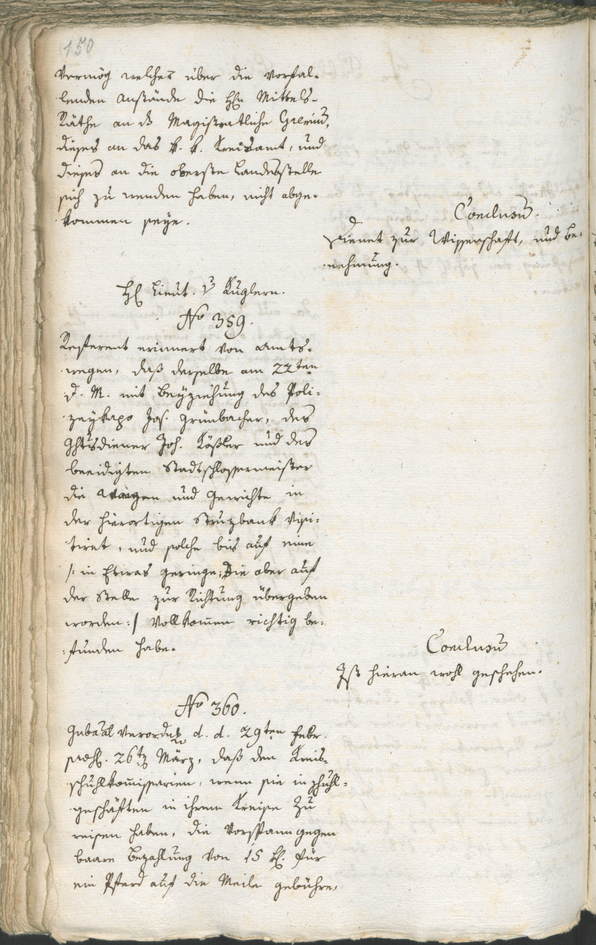 150
vermög welcher über die vorfal-
lenden Anstände die H. Mittels-
Räthe an d. Magistratliche Gremium,
dieses an das k. k. Kreisamt, und
dieses an die oberste Landesstelle
sich zu wenden haben, nicht abge-
kommen seye.
Conclusum.
Dienet zur Wissenschaft, und Be-
nehmung.
H. Lieut. v Kuglern.
No 359.
Referent erinnert von amts-
wegen, daß derselbe am 22ten
d. M. mit Beyziehung des Poli-
zeykapo Jos. Grünbacher, des
Ghtsdiener Joh. Kößler und des
beeidigten Stadtschlossermeister
die Waagen und Gewichte in
der hierortigen visi-
tiret, und solche bis auf eine
/: in Etwas geringe; Die aber auf
der Stelle zur Richtung übergeben
worden :/ vollkommen richtig be-
funden habe.
Conclusum
Ist hieran wohl geschehen.
No 360.
Gubeal Verordnung d. d. 29ten Febr.
26t März, daß den Kreis-
schulkommissarien, wenn sie in Schul-
geschäften in ihrem Kreise zu
reisen haben, die Vorspann gegen
baare Bezahlung von 15 kr. für
ein Pferd auf die Meile gebühre,